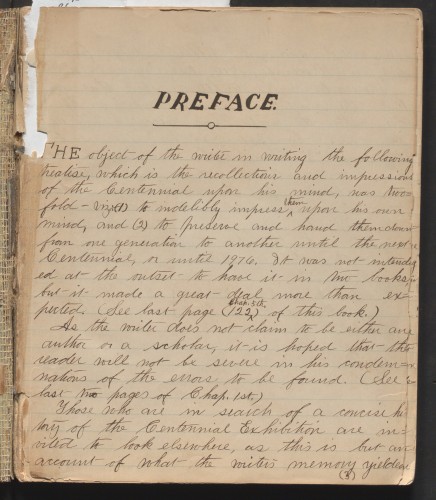 PREFACE.
THE object of the writer in writing the following
treatise, which is the recollections and impressions
of the Centennial upon his mind, was two-
fold - viz (1) to indelibly impress them upon his own
mind, and (2) to preserve and hand them down
from one generation to another until the next
Centennial, or until 1976. It was not intend-
ed at the outset to have it in two books,
but it made a great deal more than ex-
Chap. 5th.
pected. (See last page (122) of this book.)
As the writer does not claim to be either any
author or a scholar, it is hoped that the
reader will not be severe in his condem-
nations of the errors to be found. (See
last two pages of Chap. 1st.)
Those who are in search of a concise his
tory of the Centennial Exhibition are in-
vited to look elsewhere, as this is but an
account of what the writer's memory yielded
(3)